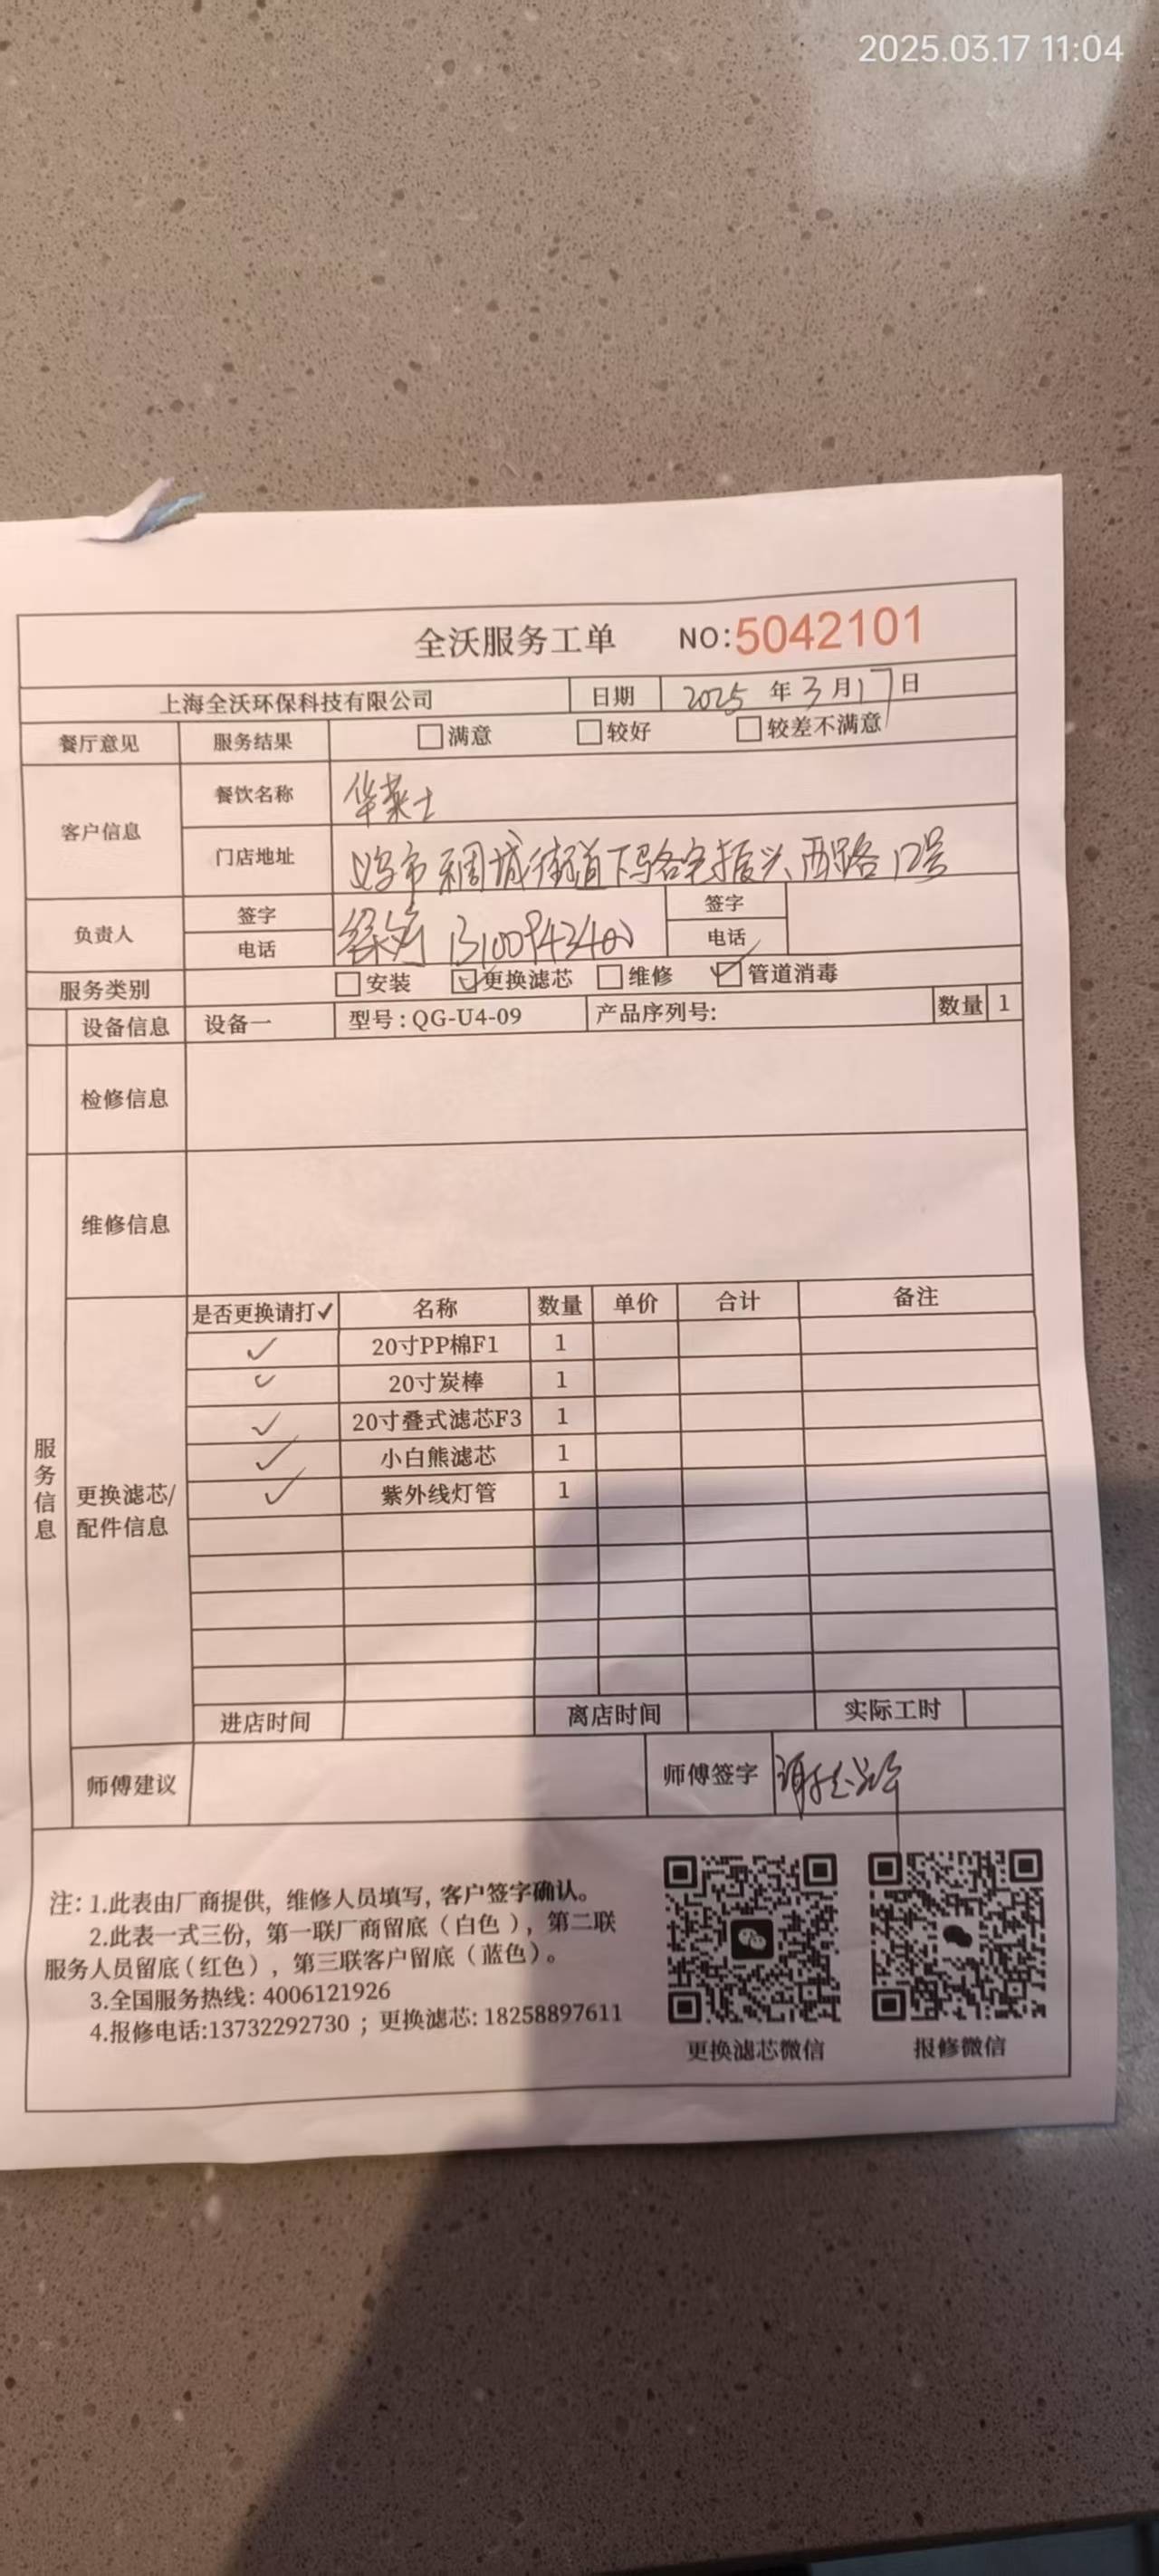 2025.03.17 11:04
全沃服务工单 NO:5042101
上海全沃环保科技有限公司 日期 2025 年 3 月 17 日
餐厅意见 服务结果 □满意 □较好 □较差不满意
客户信息
餐饮名称 华莱士
门店地址 义乌市稠城街道下骆宅振兴西路12号
负责人
签字 签字
电话 13100943400 电话
服务类别 □安装 ☑更换滤芯 □维修 ☑管道消毒
设备信息 设备一 型号:QG-U4-09 产品序列号: 数量 1
检修信息
维修信息
服务信息
更换滤芯/
配件信息
是否更换请打✓ 名称 数量 单价 合计 备注
✓ 20寸PP棉F1 1
✓ 20寸炭棒 1
✓ 20寸叠式滤芯F3 1
✓ 小白熊滤芯 1
✓ 紫外线灯管 1
进店时间 离店时间 实际工时
师傅建议 师傅签字
注: 1.此表由厂商提供, 维修人员填写, 客户签字确认。
2.此表一式三份, 第一联厂商留底(白色), 第二联
服务人员留底(红色), 第三联客户留底(蓝色)。
3.全国服务热线: 4006121926
4.报修电话:13732292730 ; 更换滤芯: 18258897611
更换滤芯微信 报修微信